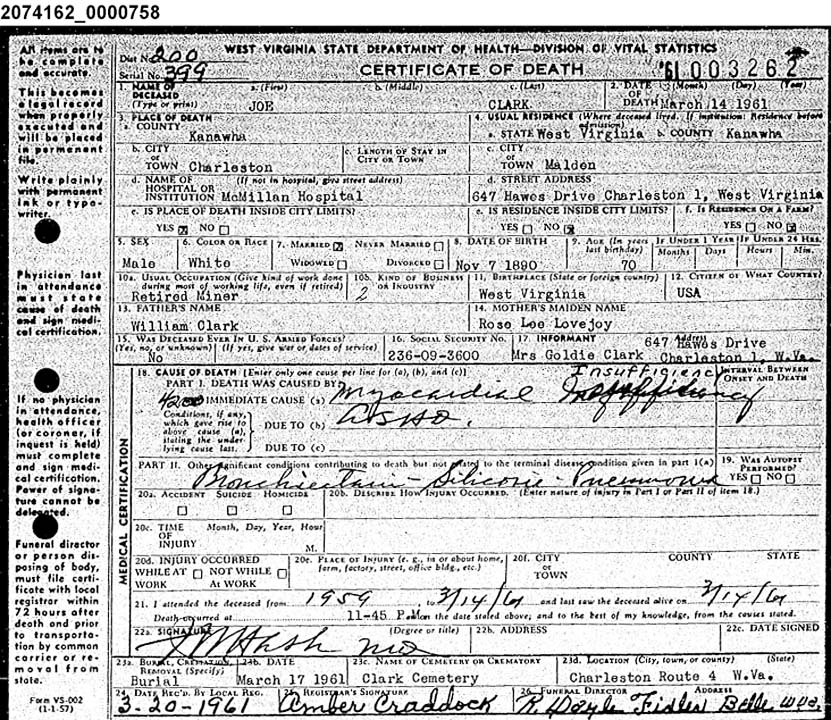 2074162_0000758
WEST VIRGINIA STATE DEPARTMENT OF HEALTH—DIVISION OF VITAL STATISTICS
Dist No. 200
Serial No. 399
CERTIFICATE OF DEATH
'61 003262
1. NAME OF DECEASED (Type or print) a. (First) JOE b. (Middle) c. (Last) CLARK
2. DATE OF DEATH (Month) (Day) (Year) March 14 1961
3. PLACE OF DEATH
a. COUNTY Kanawha
4. USUAL RESIDENCE (Where deceased lived. If institution: Residence before admission)
a. STATE West Virginia b. COUNTY Kanawha
b. CITY or TOWN Charleston
c. LENGTH OF STAY IN CITY OR TOWN
c. CITY or TOWN Malden
d. NAME OF HOSPITAL OR INSTITUTION (If not in hospital, give street address) McMillan Hospital
d. STREET ADDRESS 647 Hawes Drive Charleston 1, West Virginia
e. IS PLACE OF DEATH INSIDE CITY LIMITS? YES NO
e. IS RESIDENCE INSIDE CITY LIMITS? YES NO
f. IS RESIDENCE ON A FARM? YES NO
5. SEX Male
6. COLOR OR RACE White
7. MARRIED NEVER MARRIED WIDOWED DIVORCED
8. DATE OF BIRTH Nov 7 1890
9. AGE (In years last birthday) 70
IF UNDER 1 YEAR Months Days
IF UNDER 24 HRS. Hours Min.
10a. USUAL OCCUPATION (Give kind of work done during most of working life, even if retired) Retired Miner
10b. KIND OF BUSINESS OR INDUSTRY 2
11. BIRTHPLACE (State or foreign country) West Virginia
12. CITIZEN OF WHAT COUNTRY? USA
13. FATHER'S NAME William Clark
14. MOTHER'S MAIDEN NAME Rose Lee Lovejoy
15. WAS DECEASED EVER IN U. S. ARMED FORCES? (Yes, no, or unknown) (If yes, give war or dates of service) No
16. SOCIAL SECURITY NO. 236-09-3600
17. INFORMANT Mrs Goldie Clark Address 647 Hawes Drive Charleston 1, W.Va.
18. CAUSE OF DEATH [Enter only one cause per line for (a), (b), and (c)]
INTERVAL BETWEEN ONSET AND DEATH
PART I. DEATH WAS CAUSED BY:
4200 IMMEDIATE CAUSE (a) Myocardial Insufficiency
Conditions, if any, which gave rise to above cause (a), stating the underlying cause last.
DUE TO (b) ASHD.
DUE TO (c)
PART II. Other significant conditions contributing to death but not related to the terminal disease condition given in part I(a)
Silicosis - Pneumonia
19. WAS AUTOPSY PERFORMED? YES NO
MEDICAL CERTIFICATION
20a. ACCIDENT SUICIDE HOMICIDE
20b. DESCRIBE HOW INJURY OCCURRED. (Enter nature of injury in Part I or Part II of item 18.)
20c. TIME OF INJURY Month, Day, Year, Hour M.
20d. INJURY OCCURRED WHILE AT WORK NOT WHILE AT WORK
20e. PLACE OF INJURY (e. g., in or about home, farm, factory, street, office bldg., etc.)
20f. CITY or TOWN COUNTY STATE
21. I attended the deceased from 1959 to 3/14/61 and last saw the deceased alive on 3/14/61
Death occurred at 11-45 P.M on the date stated above; and to the best of my knowledge, from the causes stated.
22a. SIGNATURE (Degree or title) MD
22b. ADDRESS
22c. DATE SIGNED
23a. BURIAL, CREMATION, REMOVAL (Specify) Burial
23b. DATE March 17 1961
23c. NAME OF CEMETERY OR CREMATORY Clark Cemetery
23d. LOCATION (City, town, or county) (State) Charleston Route 4 W.Va.
24. DATE REC'D. BY LOCAL REG. 3-20-1961
25. REGISTRAR'S SIGNATURE Amber Craddock
26. FUNERAL DIRECTOR ADDRESS Fidler Belle W.Va.
All items are to be complete and accurate.
This becomes a legal record when properly executed and will be placed in permanent file.
Write plainly with permanent ink or typewriter.
Physician last in attendance must state cause of death and sign medical certification.
If no physician in attendance, health officer (or coroner, if inquest is held) must complete and sign medical certification. Power of signature cannot be delegated.
Funeral director or person disposing of body, must file certificate with local registrar within 72 hours after death and prior to transportation by common carrier or removal from state.
Form VS-002
(1-1-57)